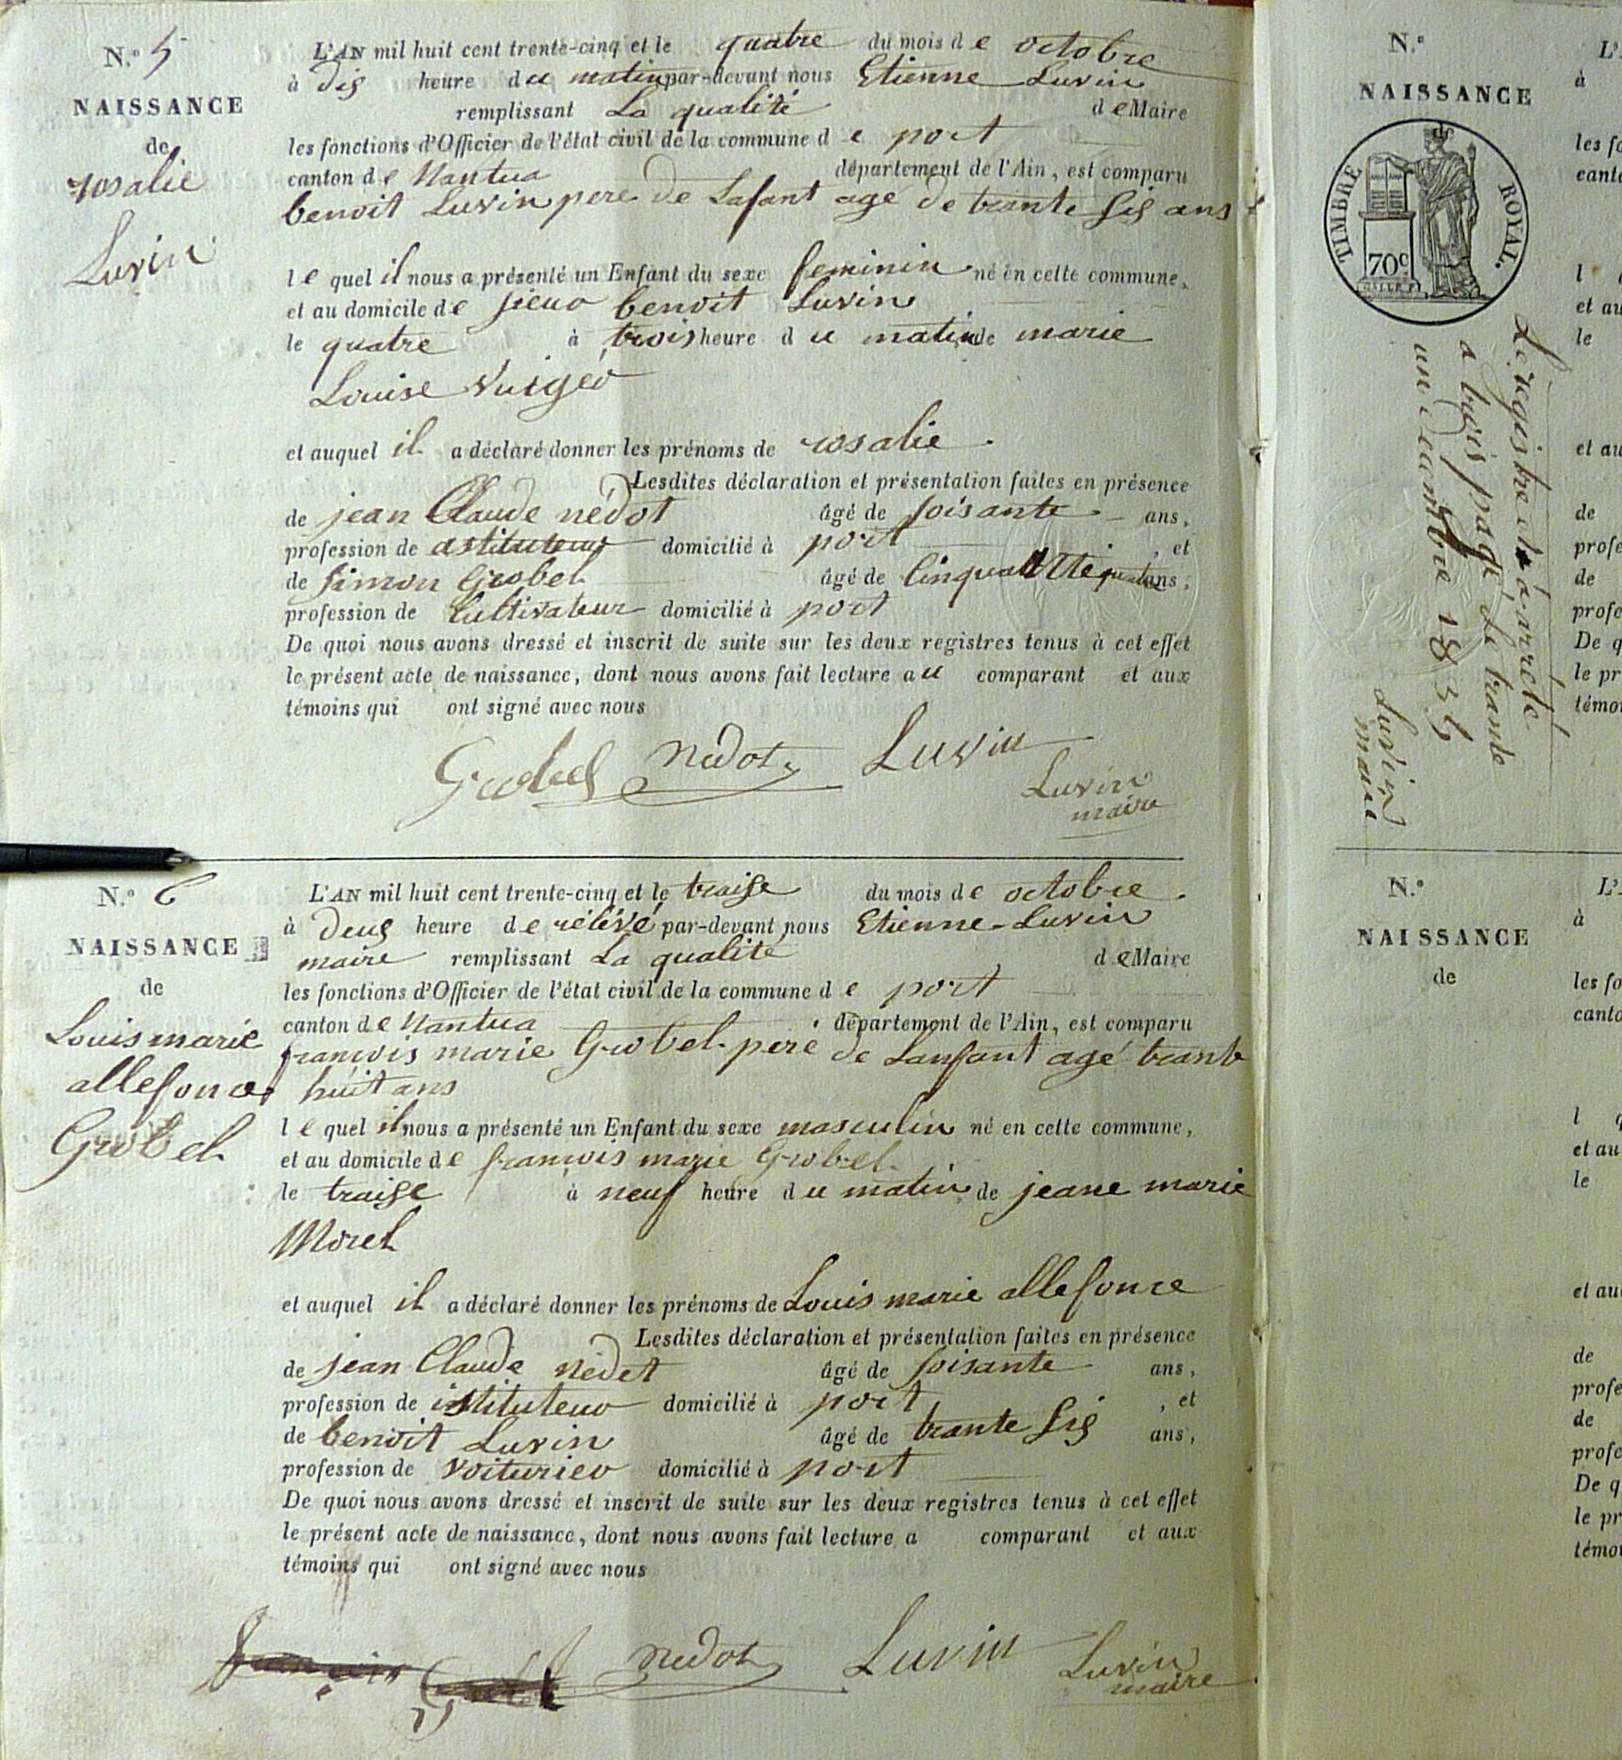 N.° 5
NAISSANCE
de
rosalie
Luvin
L'AN mil huit cent trente-cinq et le quatre du mois de octobre
à dis heure du matin par-devant nous Etienne Luvin
remplissant La qualité de Maire
les fonctions d'Officier de l'état civil de la commune de port
canton de Nantua département de l'Ain, est comparu
benoit Luvin pere de Lafant age de trante sis ans
lequel il nous a présenté un Enfant du sexe feminin né en cette commune,
et au domicile de benoit Luvin
le quatre à trois heure du matin de marie
Louise
et auquel il a déclaré donner les prénoms de rosalie
Lesdites déclaration et présentation faites en présence
de jean Claude nédot âgé de soisante ans,
profession de domicilié à port, et
de Simon Grobel âgé de ans,
profession de Cultivateur domicilié à port
De quoi nous avons dressé et inscrit de suite sur les deux registres tenus à cet effet
le présent acte de naissance, dont nous avons fait lecture au comparant et aux
témoins qui ont signé avec nous
Grobel Nedot Luvin
Luvin
maire
N.° 6
NAISSANCE
de
Louis marie
allefonce
Grobel
L'AN mil huit cent trente-cinq et le traise du mois de octobre
à deus heure de rélévé par-devant nous Etienne Luvin
maire remplissant La qualité de Maire
les fonctions d'Officier de l'état civil de la commune de port
canton de Nantua département de l'Ain, est comparu
francois marie Grobel pere de Lanfant agé trante
huit ans
lequel il nous a présenté un Enfant du sexe masculin né en cette commune,
et au domicile de francois marie Grobel
le traise à neuf heure du matin de jeane marie
Morel
et auquel il a déclaré donner les prénoms de Louis marie allefonce
Lesdites déclaration et présentation faites en présence
de jean Claude nédot âgé de soisante ans,
profession de istituteur domicilié à port, et
de benoit Luvin âgé de trante sis ans,
profession de voiturier domicilié à port
De quoi nous avons dressé et inscrit de suite sur les deux registres tenus à cet effet
le présent acte de naissance, dont nous avons fait lecture a comparant et aux
témoins qui ont signé avec nous
Nedot Luvin Luvin
maire
N.°
NAISSANCE
TIMBRE ROYAL.
70c
Le registre et árrété
a trois page le trante
un decambre 1835
Luvin
maire
L'
à
les fo
canto
l
et au
le
et au
de
profe
de
profe
De q
le pr
témoi
N.°
NAISSANCE
de
L'
à
les fo
canto
l q
et au
le
et au
de
profe
de
profe
De q
le pr
témoi